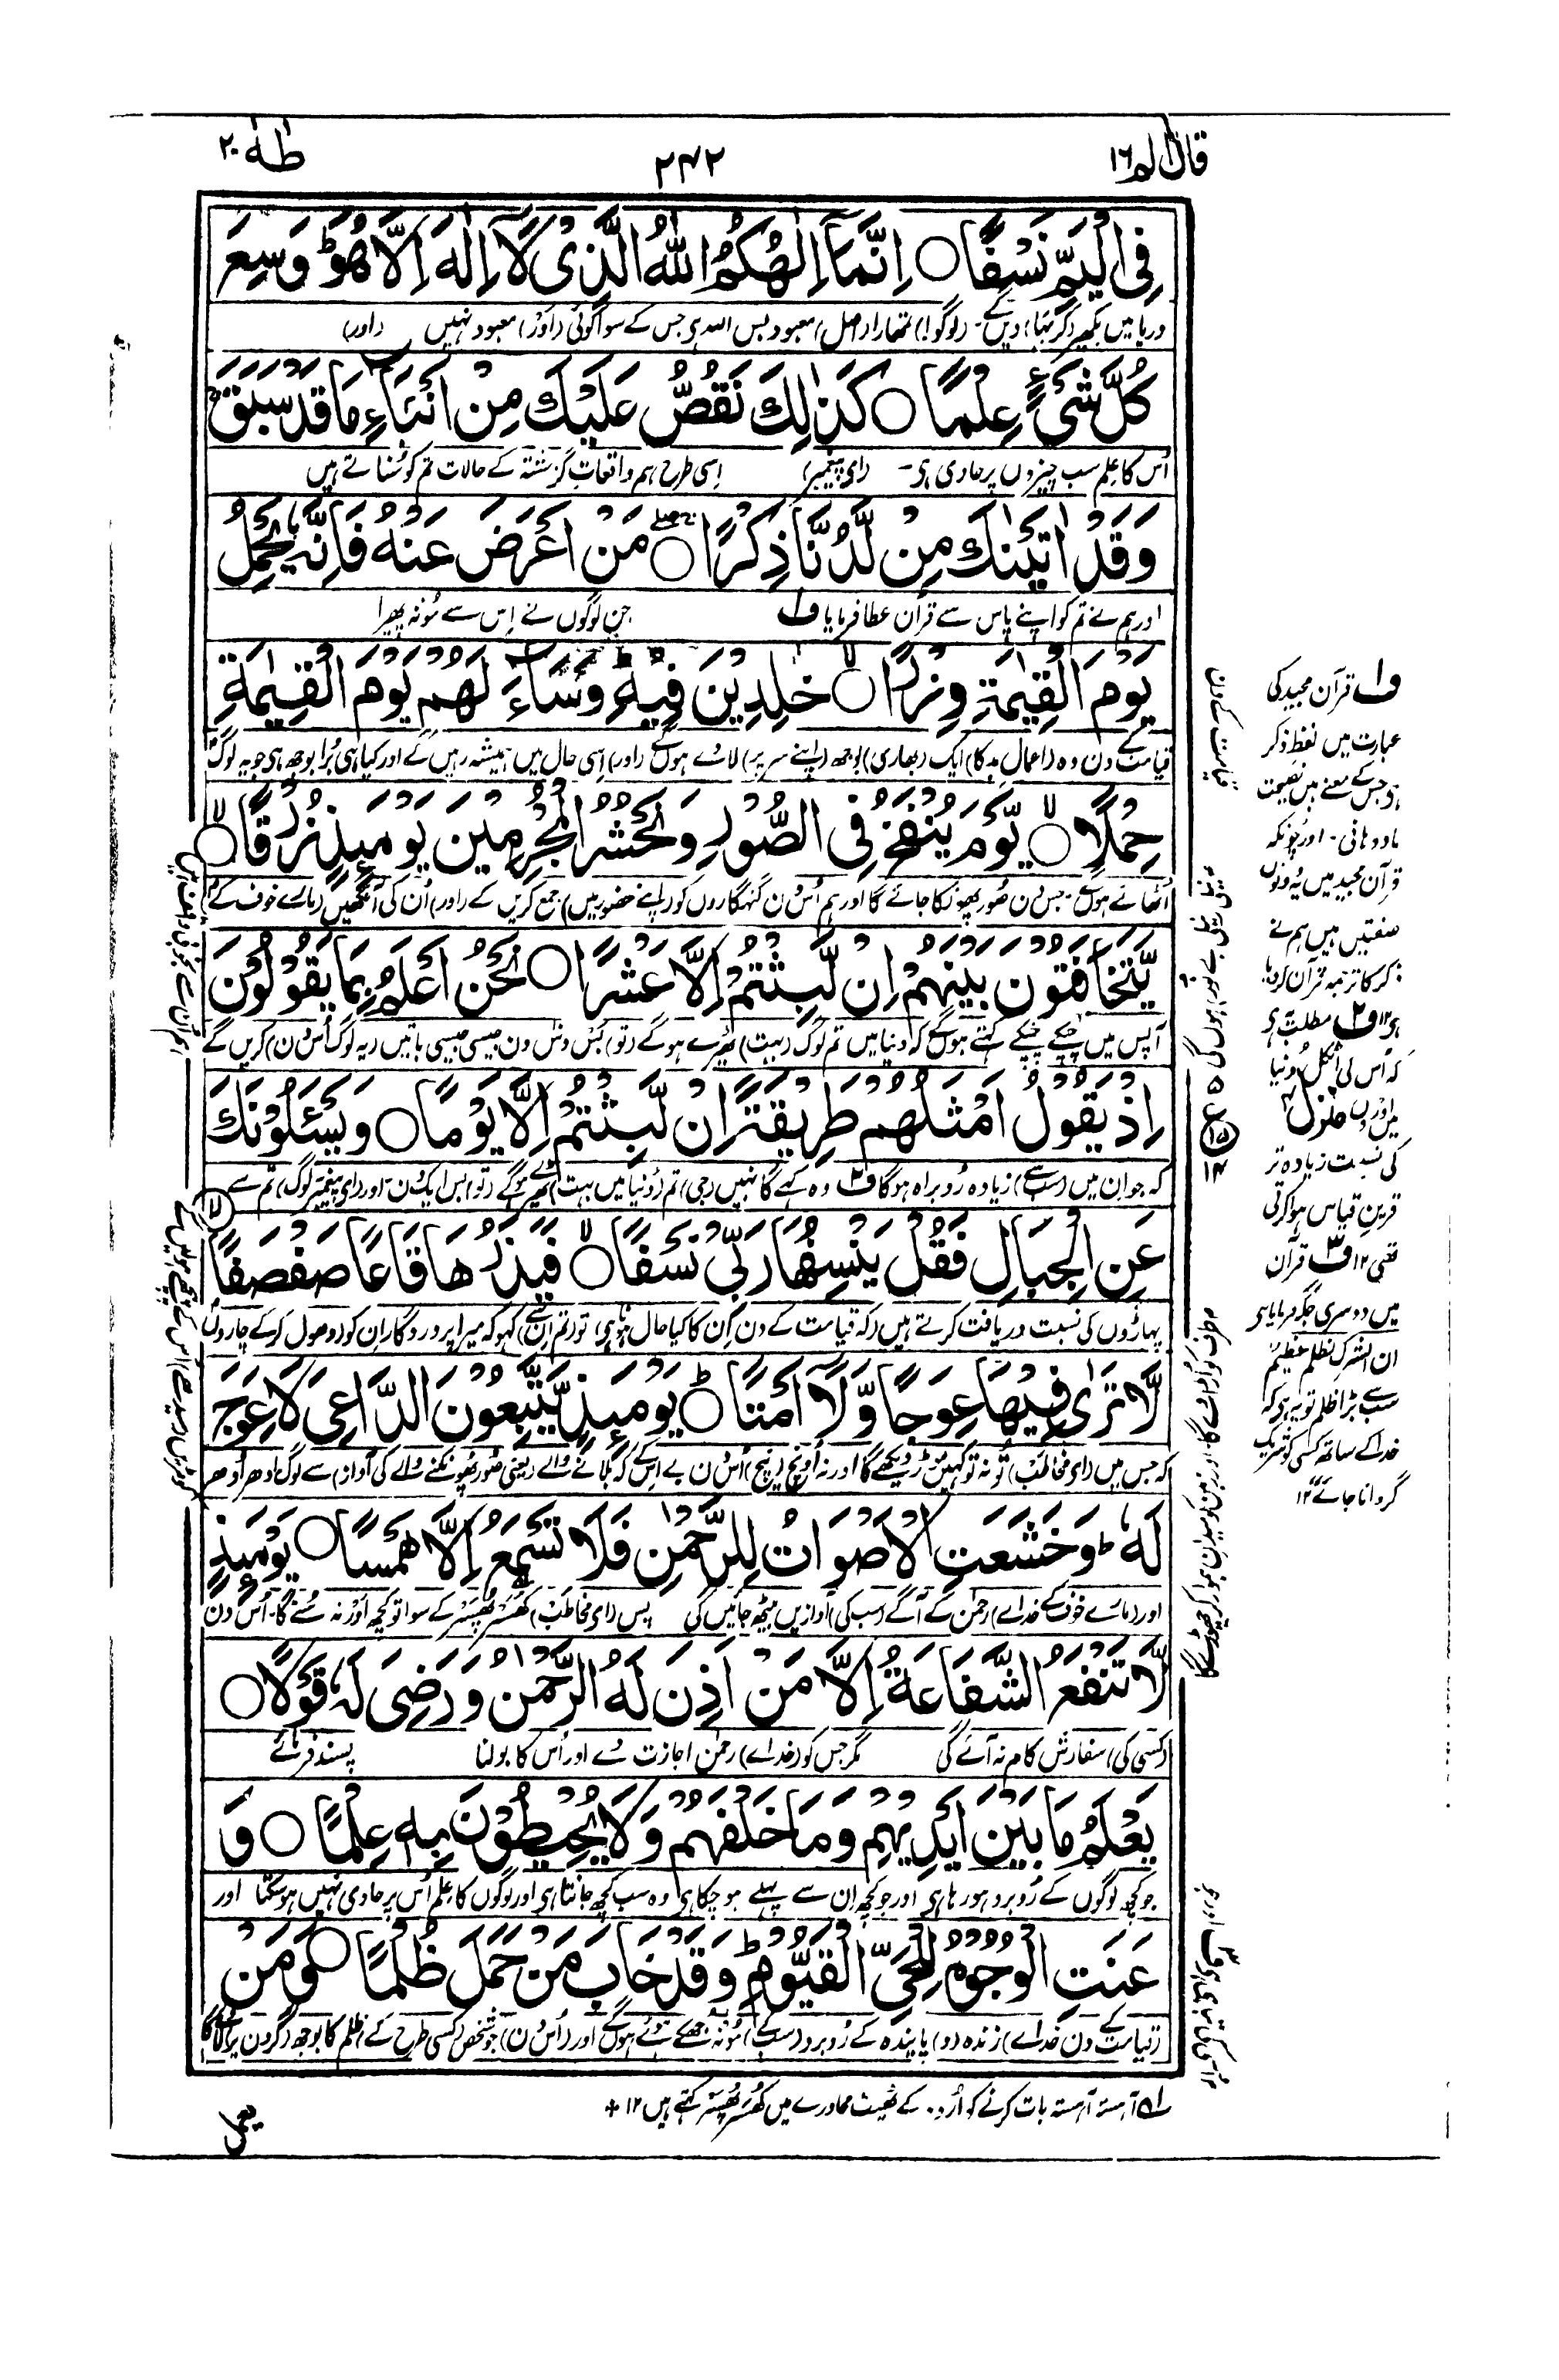 قال الم ١٦
٢٤٢
طٰهٰ ٢٠
فِی الْیَمِّ نَسْفًا ۝ اِنَّمَاۤ اِلٰهُكُمُ اللّٰهُ الَّذِیْ لَاۤ اِلٰهَ اِلَّا هُوَ ؕ وَسِعَ
دریا میں بکھیر (کر بہا) دیں گے۔ (لوگو!) تمھارا (اصل) معبود بس اللہ ہی جس کے سوا کوئی (اَوْر) معبود نہیں (اور)
كُلَّ شَیْءٍ عِلْمًا ۝ كَذٰلِكَ نَقُصُّ عَلَیْكَ مِنْ اَنْۢبَآءِ مَا قَدْ سَبَقَ ۚ
اُس کا علم سب چیزوں پر حاوی ہی۔ (ای پیغمبر) اِسی طرح ہم واقعاتِ گزشتہ کے حالات تم کو سُناتے ہیں
وَقَدْ اٰتَیْنٰكَ مِنْ لَّدُنَّا ذِكْرًا ۝ مَنْ اَعْرَضَ عَنْهُ فَاِنَّهٗ یَحْمِلُ
اور ہم نے تم کو اپنے پاس سے قرآن عطا فرمایا ف۱ جن لوگوں نے اِس سے مُونہ پھیرا
یَوْمَ الْقِیٰمَةِ وِزْرًا ۝ خٰلِدِیْنَ فِیْهِ ؕ وَسَآءَ لَهُمْ یَوْمَ الْقِیٰمَةِ
قیامت کے دن وہ (اعمالِ بد کا) ایک (بھاری) بوجھ (اپنے سر پر) لادے ہوں گے (اور) اِسی حال میں ہمیشہ رہیں گے اور کیا ہی بُرا بوجھ ہی جو یہ لوگ
حِمْلًا ۝ یَّوْمَ یُنْفَخُ فِی الصُّوْرِ وَنَحْشُرُ الْمُجْرِمِیْنَ یَوْمَىِٕذٍ زُرْقًا ۝
اُٹھائے ہوں گے۔ جس دن صُور پھونکا جائے گا اور ہم اُس دن گنہگاروں کو (اپنے حضور میں) جمع کریں گے (اور) اُن کی آنکھیں (مارے خوف کے)
یَّتَخَافَتُوْنَ بَیْنَهُمْ اِنْ لَّبِثْتُمْ اِلَّا عَشْرًا ۝ نَحْنُ اَعْلَمُ بِمَا یَقُوْلُوْنَ
آپس میں چپکے چپکے کہتے ہوں گے کہ دنیا میں تم لوگ (بہت) ٹھیرے ہو گے (تو) بس دس دن جیسی جیسی باتیں (یہ لوگ اُس دن) کریں گے
اِذْ یَقُوْلُ اَمْثَلُهُمْ طَرِیْقَةً اِنْ لَّبِثْتُمْ اِلَّا یَوْمًا ۝ وَیَسْـَٔلُوْنَكَ
کہ جو اِن میں (سب سے) زیادہ رُو براہ ہو گا ف۲ وہ کہے گا نہیں (جی) تم (دُنیا میں بہت) ٹھیرے ہو گے (تو) بس ایک دن اور (ای پیغمبر لوگ) تم سے
عَنِ الْجِبَالِ فَقُلْ یَنْسِفُهَا رَبِّیْ نَسْفًا ۝ فَیَذَرُهَا قَاعًا صَفْصَفًا ۝
پہاڑوں کی نسبت دریافت کرتے ہیں (کہ قیامت کے دن اِن کا کیا حال ہونا ہی) تو (تم اِن سے) کہو کہ میرا پروردگار اِن کو (دھول کر کے چاروں
لَّا تَرٰی فِیْهَا عِوَجًا وَّلَاۤ اَمْتًا ۝ یَوْمَىِٕذٍ یَّتَّبِعُوْنَ الدَّاعِیَ لَا عِوَجَ
کہ جس میں (ای مخاطَب) تُو نہ تو کہیں موڑ دیکھے گا اور نہ اُونچ (نیچ) اُس دن بے اِس کے کہ بلانے والے (یعنی صُور پھونکنے والے کی آواز) سے لوگ اِدھر اُدھر
لَهٗ ۚ وَخَشَعَتِ الْاَصْوَاتُ لِلرَّحْمٰنِ فَلَا تَسْمَعُ اِلَّا هَمْسًا ۝ یَوْمَىِٕذٍ
اور (مارے خوف کے خدائے) رحمٰن کے آگے (سب کی) آوازیں بیٹھ جائیں گی پس (ای مخاطَب) کُھسر پُھسر کے سوا تو کچھ اَوْر نہ سُنے گا۔ اُس دن
لَّا تَنْفَعُ الشَّفَاعَةُ اِلَّا مَنْ اَذِنَ لَهُ الرَّحْمٰنُ وَرَضِیَ لَهٗ قَوْلًا ۝
(کسی کی) سفارش کام نہ آئے گی مگر جس کو (خدائے) رحمٰن اجازت دے اور اُس کا بولنا پسند فرمائے
یَعْلَمُ مَا بَیْنَ اَیْدِیْهِمْ وَمَا خَلْفَهُمْ وَلَا یُحِیْطُوْنَ بِهٖ عِلْمًا ۝ وَ
جو کچھ لوگوں کے رُوبرو ہو رہا ہی اور جو کچھ اِن سے پہلے ہو چکا ہی وہ سب کچھ جانتا ہی اور لوگوں کا علم اُس پر حاوی نہیں ہو سکتا اور
عَنَتِ الْوُجُوْهُ لِلْحَیِّ الْقَیُّوْمِ ؕ وَقَدْ خَابَ مَنْ حَمَلَ ظُلْمًا ۝ وَمَنْ
(قیامت کے دن خدائے) زندہ (و) پایندہ کے رُوبرو (سب کے) مُونہ جھکے ہوئے ہوں گے اور (اُس دن) جو شخص (کسی طرح کے) ظلم کا بوجھ (گردن پر) لائے گا
لہ آہستہ آہستہ بات کرنے کو اُردو کے ٹھیٹ محاورے میں کُھسر پُھسر کہتے ہیں ۱۲ +
یعمل
ف۱ قرآن مجید کی
عبارت میں لفظِ ذکر
ہی جس کے معنے ہیں نصیحت
یاددہانی۔ اور چونکہ
قرآن مجید میں یہ دونوں
صفتیں ہیں ہم نے
ذکر کا ترجمہ قرآن کر دیا
ہی ۱۲ ف۲ مطلب یہ ہی
کہ اُس کی اٹکل دنیا
میں اوروں
منزل ٤
کی نسبت زیادہ تر
قرینِ قیاس ہوا کرتی
تھی ۱۲ ف۳ قرآن
میں دوسری جگہ فرمایا ہی
ان الشرک لظلم عظیم
سب سے بڑا ظلم تو یہ ہی کہ
خدا کے ساتھ کسی کو شریک
گردانا جائے ۱۲